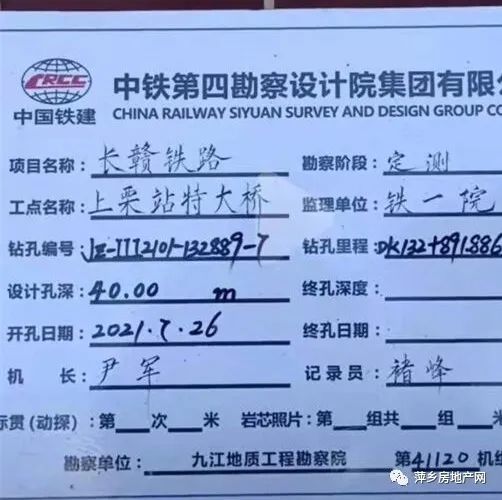 CRCC
中国铁建
中铁第四勘察设计院集团有限公
CHINA RAILWAY SIYUAN SURVEY AND DESIGN GROUP CO
项目名称：长赣铁路 勘察阶段：定测
工点名称：上栗站特大桥 监理单位：铁一院
钻孔编号：JZ-III2101-132889-7 钻孔里程：DK132+891.886
设计孔深：40.00 m 终孔深度：
开孔日期：2021.7.26 终孔日期：
机 长：尹军 记录员：褚峰
标贯(动探)：第 次 米 岩芯照片：第 组共 组 米
勘察单位：九江地质工程勘察院 第41120机组
萍乡房地产网